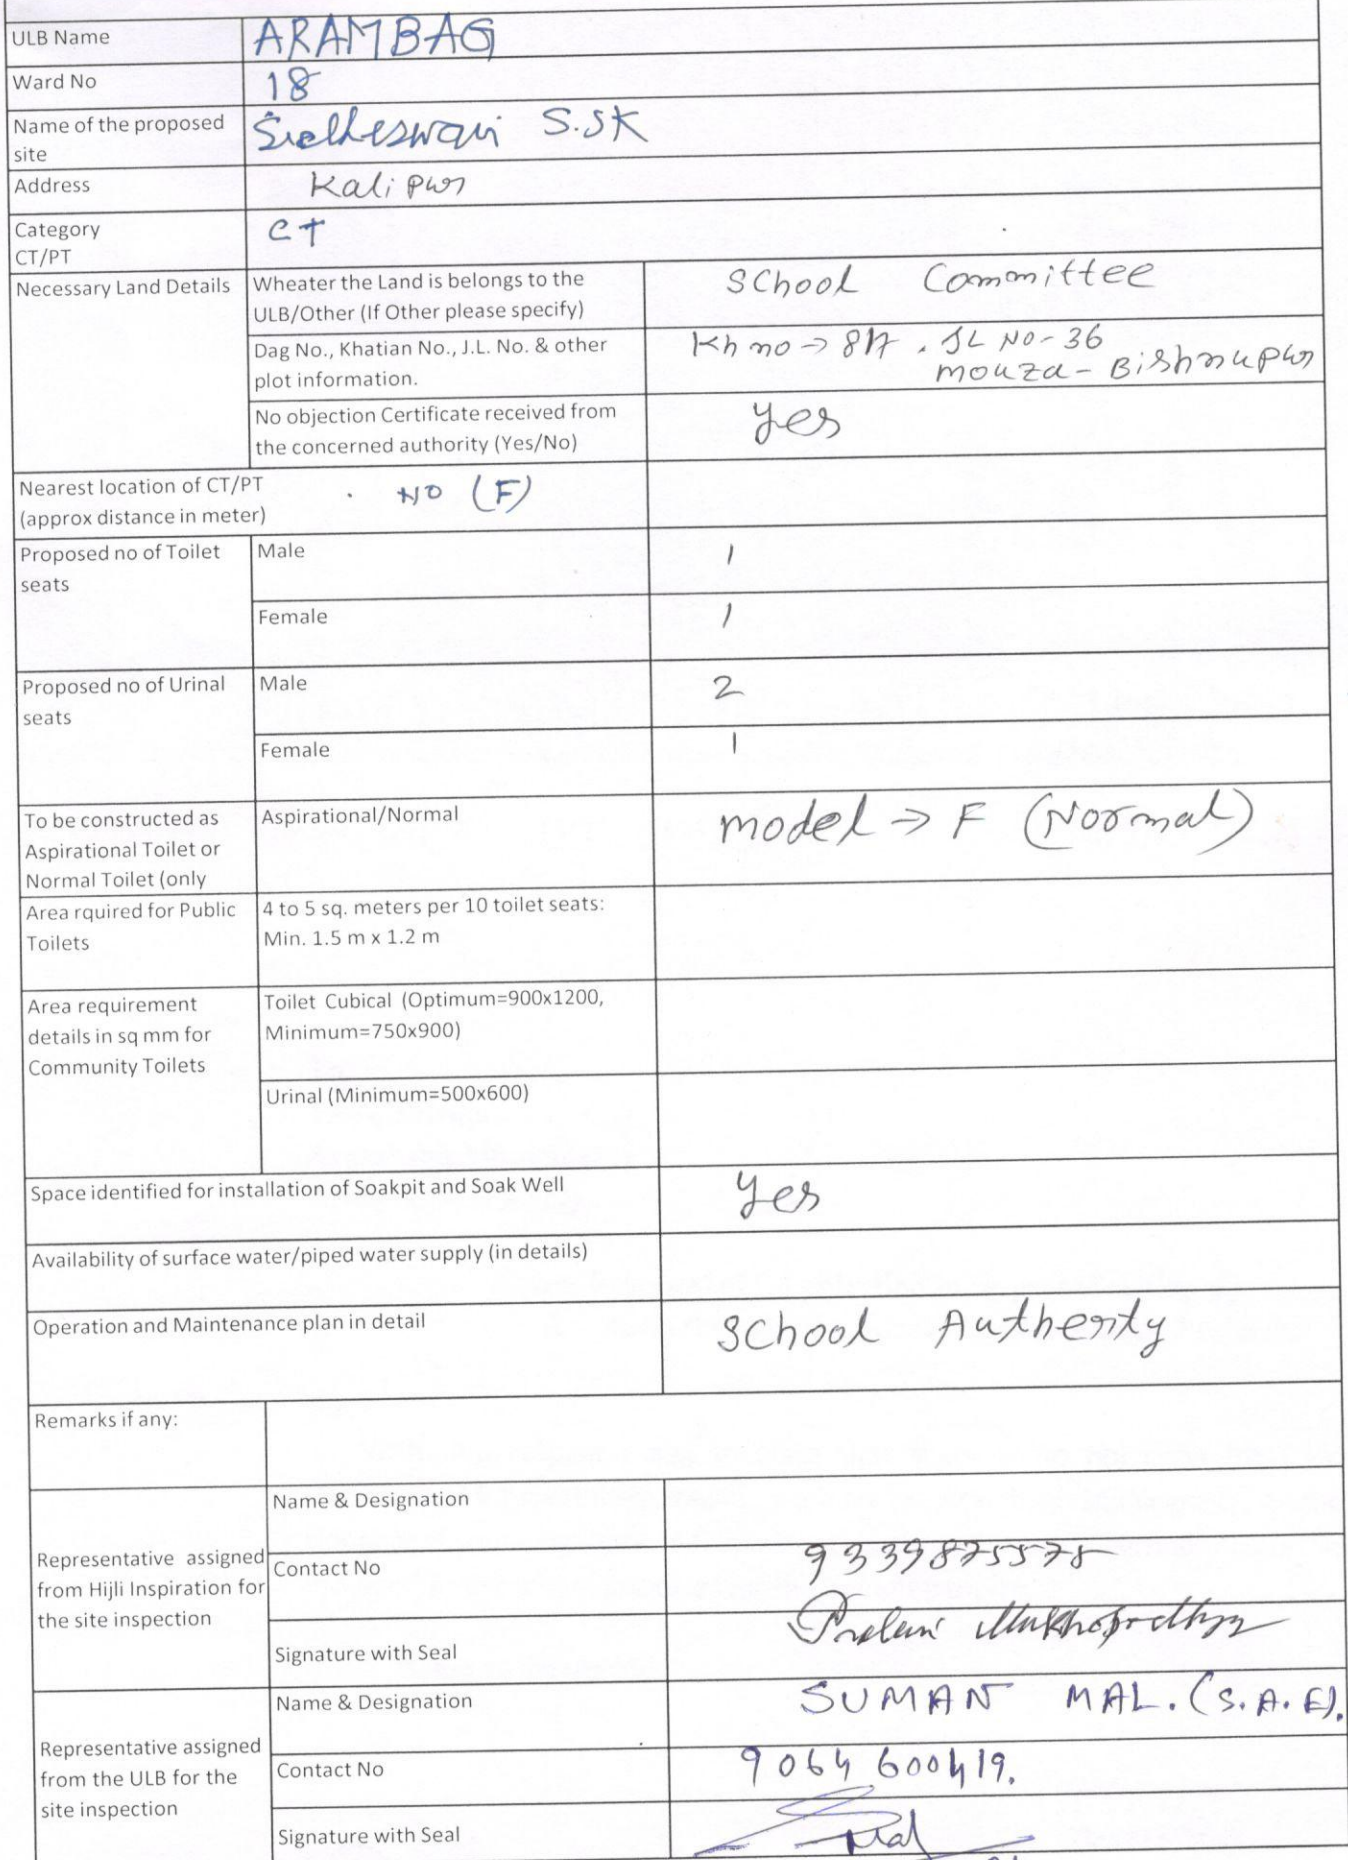 ULB Name ARAMBAG
Ward No 18
Name of the proposed
site
S.SK
Address Kalipur
Category CT
CT/PT
Necessary Land Details
Wheater the Land is belongs to the
ULB/Other (If Other please specify)
School Committee
Dag No., Khatian No., J.L. No. & other
plot information.
Kh no → 817 . JL NO-36
mouza - Bishnupur
No objection Certificate received from
the concerned authority (Yes/No)
Yes
Nearest location of CT/PT
(approx distance in meter)
NO (F)
Proposed no of Toilet
seats
Male 1
Female 1
Proposed no of Urinal
seats
Male 2
Female 1
To be constructed as
Aspirational Toilet or
Normal Toilet (only
Aspirational/Normal
model → F (Normal)
Area rquired for Public
Toilets
4 to 5 sq. meters per 10 toilet seats:
Min. 1.5 m x 1.2 m
Area requirement
details in sq mm for
Community Toilets
Toilet Cubical (Optimum=900x1200,
Minimum=750x900)
Urinal (Minimum=500x600)
Space identified for installation of Soakpit and Soak Well Yes
Availability of surface water/piped water supply (in details)
Operation and Maintenance plan in detail School Autherity
Remarks if any:
Representative assigned
from Hijli Inspiration for
the site inspection
Name & Designation
Contact No 9339875578
Signature with Seal
Representative assigned
from the ULB for the
site inspection
Name & Designation SUMAN MAL. (S.A.E).
Contact No 9064600419.
Signature with Seal Mal